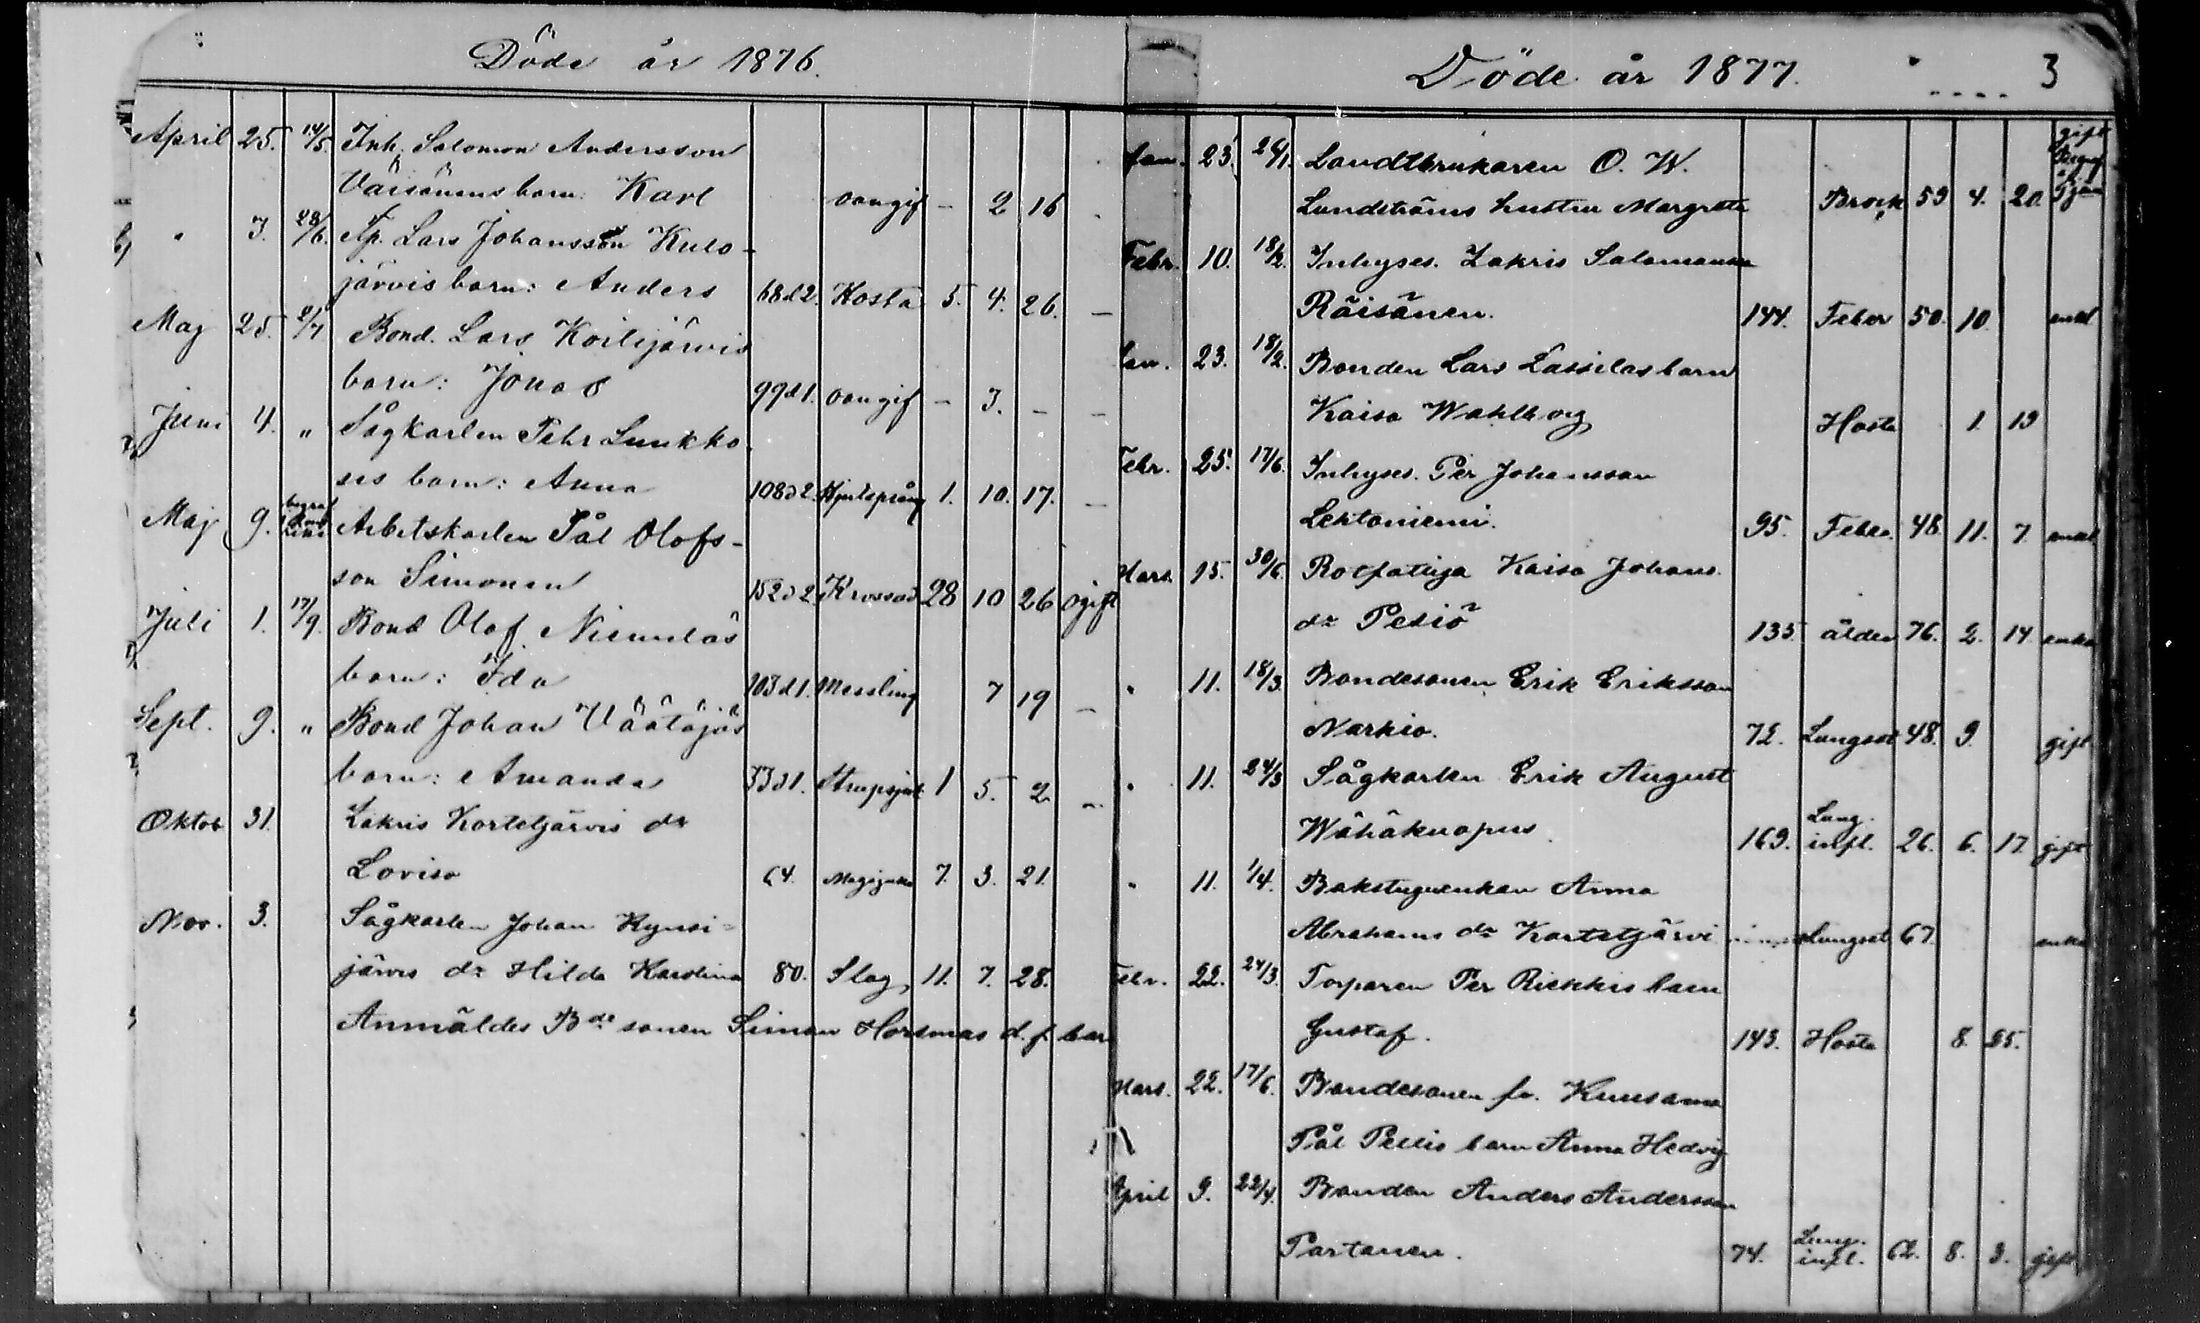 Döde år 1876.
April 25. 14/5. Inh. Salomon Andersson
Väisänens barn: Karl oangif - 2 16
" 3. 28/6. Lars Johansson Kulo-
järvis barn: Anders 68d2. Hosta 5. 4. 26. -
Maj 25. 2/7 Bond. Lars Koilijärvis
barn: Jonas 99d1. oangif - 3. - -
Juni 4. " Sågkarlen Pehr Luukko
ses barn: Anna 108d2. 1. 10. 17. -
Maj 9. Arbetskarlen Pål Olofs-
son Simonen 152d2 Krossad 28 10 26 ogift
Juli 1. 17/9. Bond Olof Niemeläs
barn: Ida 103d1. Messling 7 19 -
Sept. 9. " Bond Johan Väätäjäs
barn: Amanda 33d1. Strupsjuk 1 5. 2 -
Oktob 31. Zakris Kortetjärvis dr
Lovisa 64. 7. 3. 21.
Nov. 3. Sågkarlen Johan Kynsi-
järvis dr Hilda Karolina 80. Slag 11. 7. 28.
Anmäldes Bde sonen Simon Hormas d. f. barn
Döde år 1877. 3
Jan. 23. 26/1. Landtbrukaren O. W. gift
Lundströms hustru Margreta Brock 59 4. 20.
Febr. 10. 18/2. Inhyses. Zakris Salomonss
Räisänen. 144. Feber 50. 10. enkl
Jan. 23. 18/2. Bonden Lars Lassilas barn
Kaisa Wahlborg Hosta 1. 19
Febr. 25. 17/6. Inhyses. Per Johansson
Lehtoniemi. 95. Feber 48 11. 7. enkl
Mars. 15. 30/6. Rotfattiga Kaisa Johans
dr Petiö 135 ålder 76. 2. 14. enka
" 11. 18/3. Bondesonen Erik Eriksson
Narkio. 72. Lungsot 48. 9. gift
" 11. 24/3 Sågkarlen Erik August
Wähäkuopus. 169. Lung.
infl. 26. 6. 17 gift
" 11. 1/4. Bakstuguenkan Anna
Abrahams dr Kortetjärvi Lungsot 67. enka
Febr. 22. 24/3. Torparen Per Riekkis barn
Gustaf. 143. Hosta 8. 25.
Mars. 22. 17/6. Bondesonen fr. Kuusamo
Pål Pellis barn Anna Hedvig
April 9. 22/4. Bonden Anders Andersson
Partanen. 74. Lung.
infl. 62. 8. 3. gift